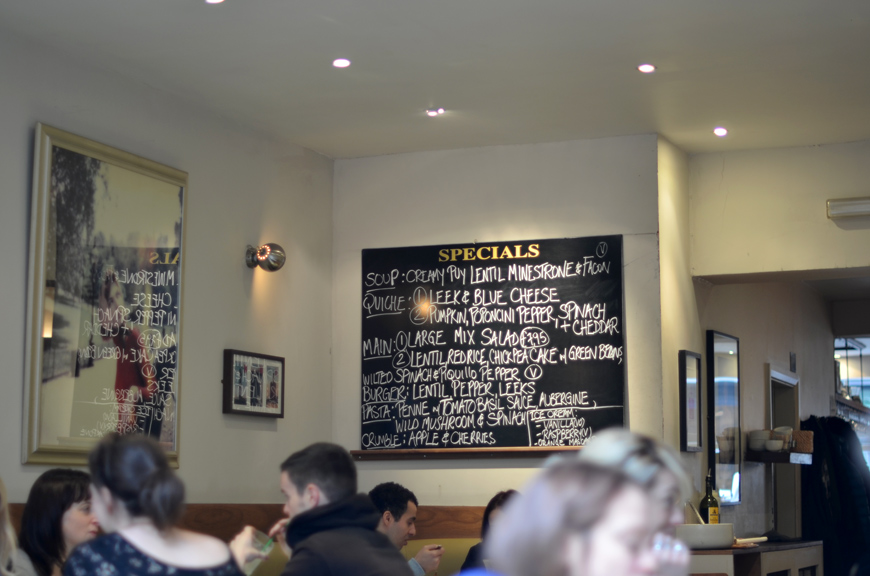 SPECIALS
SOUP: CREAMY PUY LENTIL MINESTRONE & FACON V
QUICHE: 1 LEEK & BLUE CHEESE
2 PUMPKIN, POPONCINI PEPPER, SPINACH
+ CHEDDAR
MAIN: 1 LARGE MIX SALAD
2 LENTIL, RED RICE, CHICKPEA CAKE W GREEN BEANS,
WILTED SPINACH & PIQUILLO PEPPER V
BURGER: LENTIL PEPPER LEEKS
PASTA: PENNE W TOMATO BASIL SAUCE AUBERGINE,
WILD MUSHROOM & SPINACH
CRUMBLE: APPLE & CHERRIES
ICE CREAM:
- VANILLA
- RASPBERRY
- ORANGE